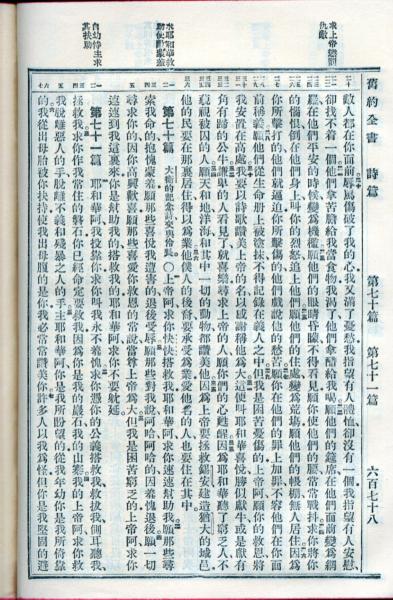 舊約全書 詩篇 第七十篇 第七十一篇 六百七十八
求上帝懲罰
仇敵
敵人都在你面前辱罵傷破了我的心我又滿了憂愁我指望有人體恤卻沒有一個我指望有人安慰、
卻找不着一個他們拿苦膽給我當食物我渴了他們拿醋給我喝願他們的筵席在他們面前變為網
羅在他們平安的時候變為機檻願他們的眼睛昏矇不得看見願你使他們的腰常常戰抖求你將你
的惱恨倒在他們身上叫你的烈怒追上他們願他們的住處變為荒場願他們的帳棚無人居住因為
你所擊打的他們就逼迫你所擊傷的他們戲說他的愁苦願你在他們的罪上加罪不容他們在你面
前稱義願他們從生命册上被塗抹不得記錄在義人之中但我是困苦憂傷的上帝阿願你的救恩將
我安置在高處我要以詩歌讚美上帝的名以感謝稱他為大這便叫耶和華喜悅勝似獻牛或是獻有
角有蹄的公牛謙卑的人看見了就喜樂尋求上帝的人願你們的心甦醒因為耶和華聽了窮乏人不
藐視被囚的人願天和地洋海和其中一切的動物都讚美他因為上帝要拯救錫安建造猶大的城邑
他的民要在那裏居住得以為業他僕人的後裔要承受為業愛他名的人也要住在其中
求耶和華救
第七十篇 大衛的紀念詩交與伶長○上帝阿求你快快搭救我耶和華阿求你速速幫助我願那些尋
索我命的抱愧蒙羞願那些喜悅我遭害的退後受辱願那些對我說阿哈阿哈的因羞愧退後願一切
尋求你的因你高興歡喜願那些喜愛你救恩的常說當尊上帝為大但我是困苦窮乏的上帝阿求你
速速到我這裏來你是幫助我的搭救我的耶和華阿求你不要躭延
自幼恃主求
其扶助
第七十一篇 耶和華阿我投靠你求你叫我永不羞愧求你憑你的公義搭救我救拔我側耳聽我
拯救我求你作我常住的磐石你已經命定要救我因為你是我的巖石我的山寨我的上帝阿求你救
我脫離惡人的手脫離不義和殘暴之人的手主耶和華阿你是我所盼望的從我年幼你是我所倚靠
的我從出母胎被你扶持使我出母腹的是你我必常常讚美你許多人以我為怪但你是我堅固的避